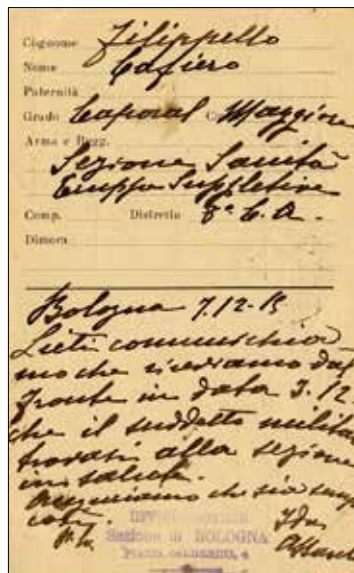 Cognome Filippello
Nome Cafiero
Paternità
Grado Caporal Maggiore
Arma e Regg.
Sezione Sanità
Truppa Suppletive
Comp. Distretto 8ª C.A.
Dimora
Bologna 7.12.15
Lieti comunichia
mo che riceviamo dal
fronte in data 3.12
che il suddetto milita
trovasi alla sezione
in salute.
che sia semp
così.
UFFICIO NOTIZIE
Sezione di BOLOGNA
PIAZZA 4